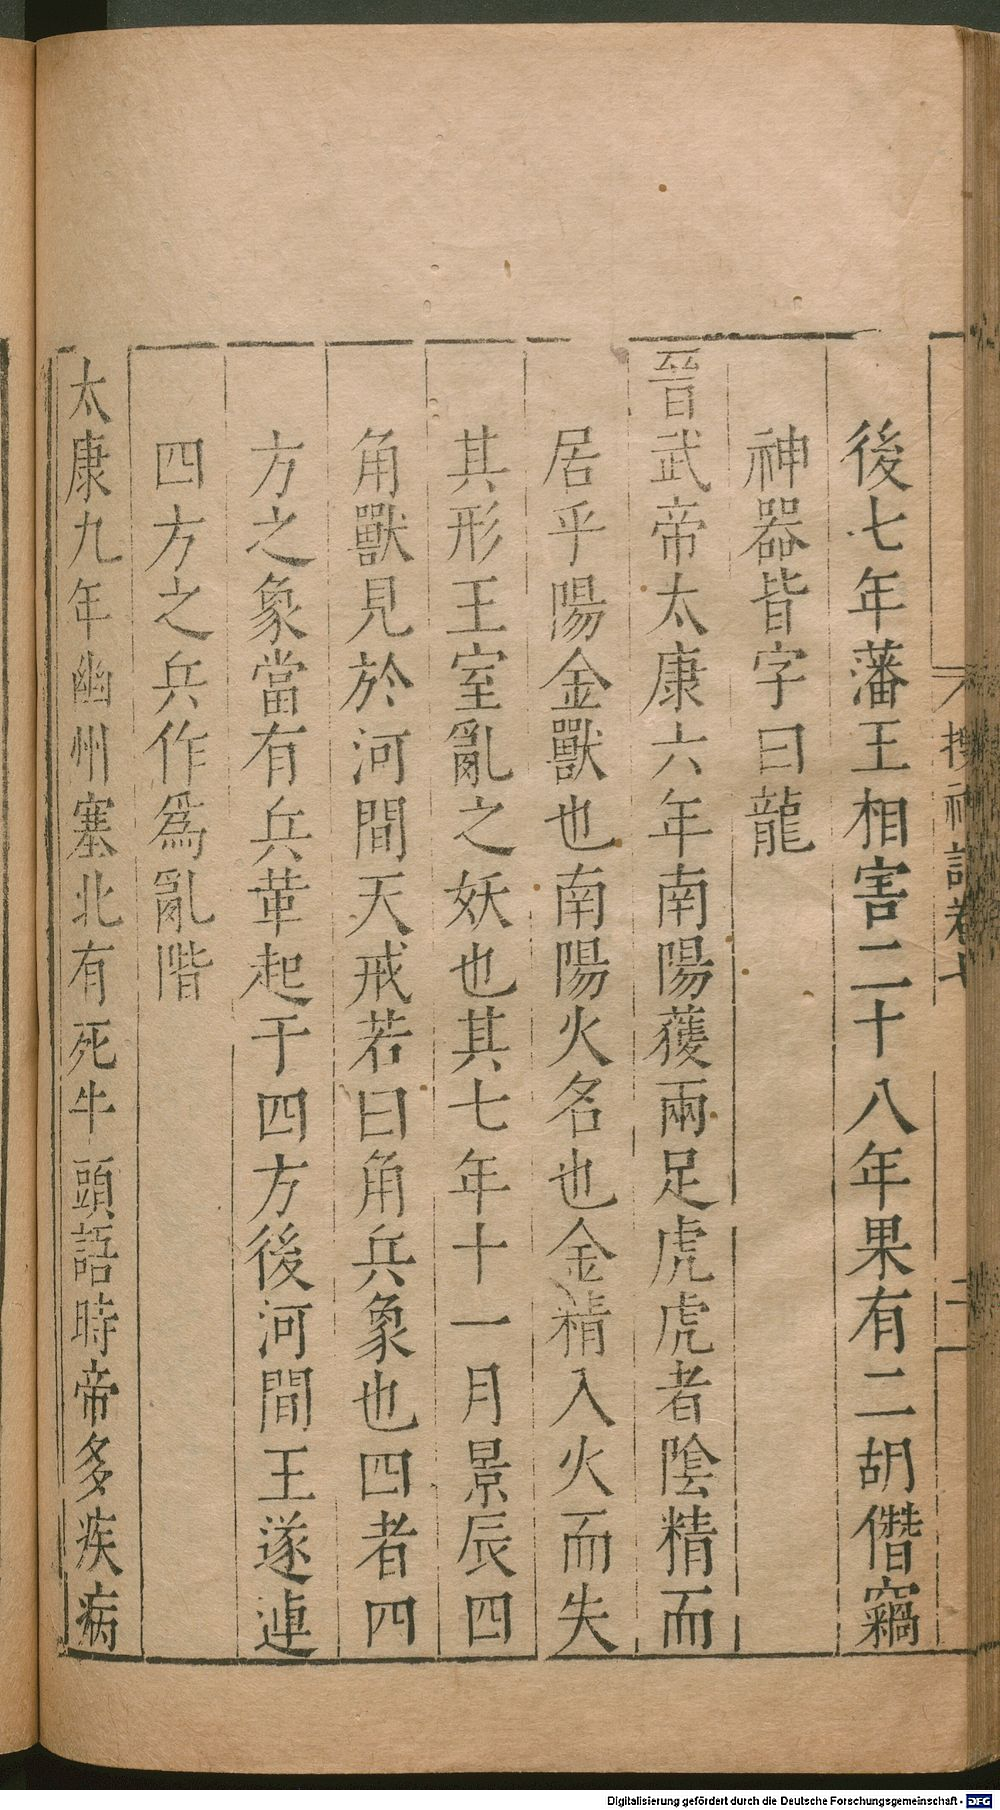 後七年藩王相害二十八年果有二胡僭竊
神器皆字曰龍
晉武帝太康六年南陽獲兩足虎虎者陰精而
居乎陽金獸也南陽火名也金精入火而失
其形王室亂之妖也其七年十一月景辰四
角獸見於河間天戒若曰角兵象也四者四
方之象當有兵革起于四方後河間王遂連
四方之兵作爲亂階
太康九年幽州塞北有死牛頭語時帝多疾病
Digitalisierung gefördert durch die Deutsche Forschungsgemeinschaft - DFG